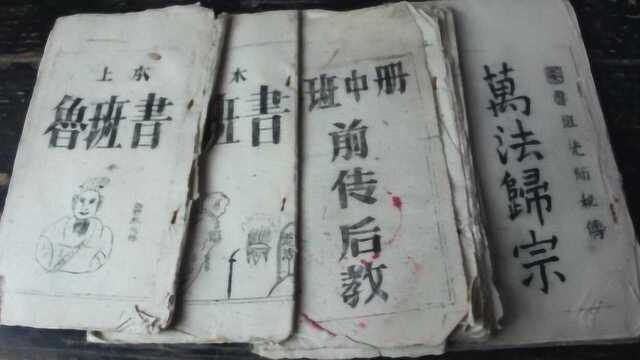 上本
魯班書
班書
班中册
前传后教
魯班先师秘傳
萬法歸宗